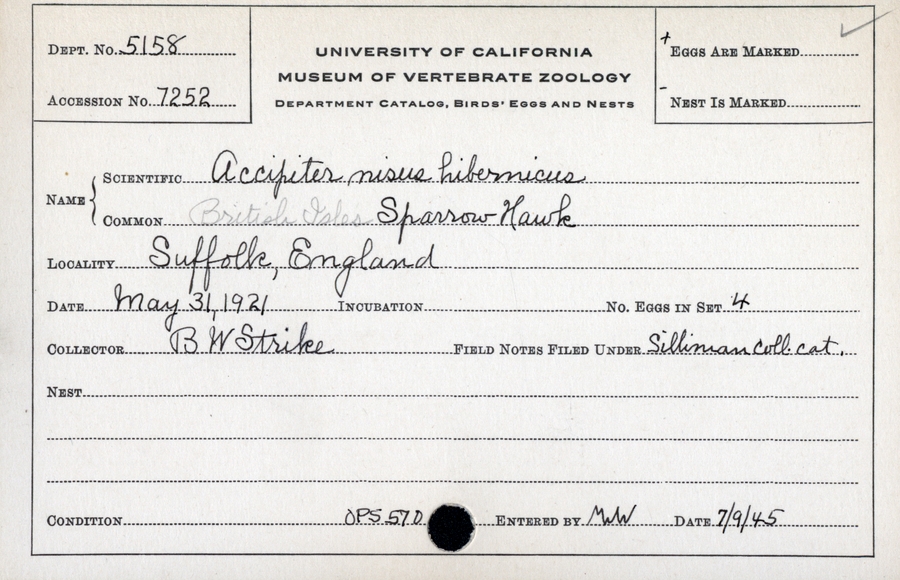 DEPT. No. 5158
UNIVERSITY OF CALIFORNIA
MUSEUM OF VERTEBRATE ZOOLOGY
DEPARTMENT CATALOG, BIRDS' EGGS AND NESTS
+ EGGS ARE MARKED
ACCESSION No. 7252
- NEST IS MARKED
NAME { SCIENTIFIC Accipiter nisus hibernicus
COMMON British Isles Sparrow Hawk
LOCALITY Suffolk, England
DATE May 31, 1921 INCUBATION No. EGGS IN SET 4
COLLECTOR B W Strike FIELD NOTES FILED UNDER Silliman coll. cat.
NEST
CONDITION OPS 570 ENTERED BY MW DATE 7/9/45